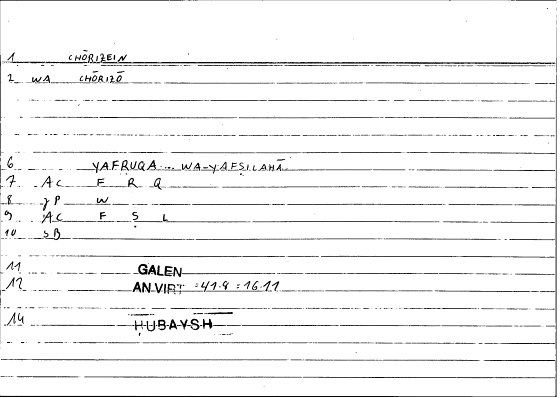 1 CHŌRIZEIN
2 WA CHŌRIZŌ
6 YAFRUQA... WA-YAFṢILAHĀ
7 AC F R Q
8 γP W
9 AC F Ṣ L
10 SB
11 GALEN
12 AN VIRT =41.8 = 16.11
14 ḤUBAYSH